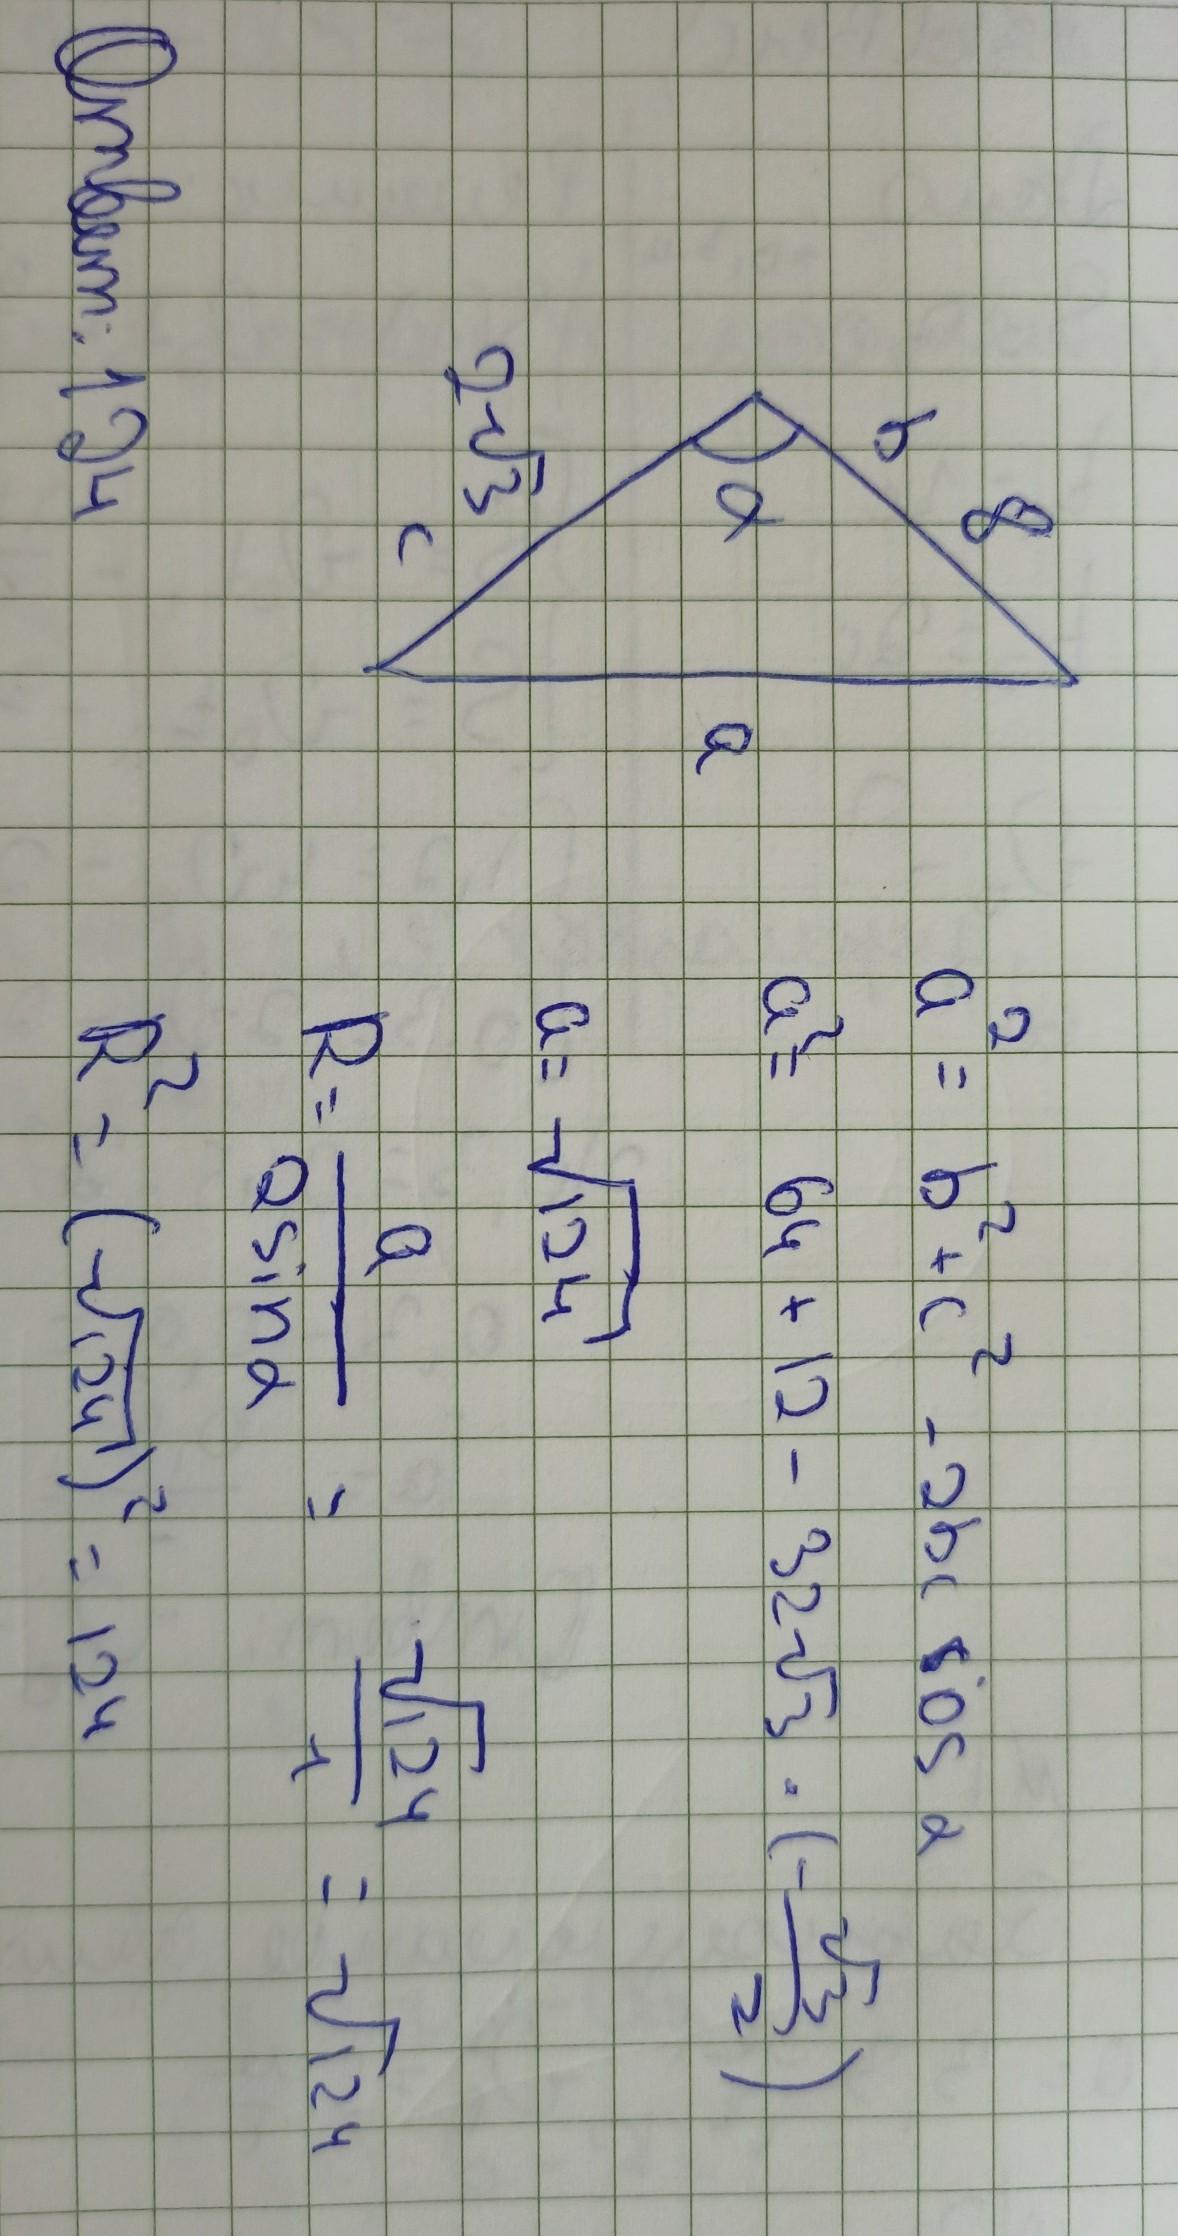 b 8
α
2√3
c
a
a² = b² + c² - 2bc cos α
a² = 64 + 12 - 32√3 · (-√3/2)
a = √124
R = a/(2sinα) = √124/1 = √124
R² = (√124)² = 124
Ответ: 124